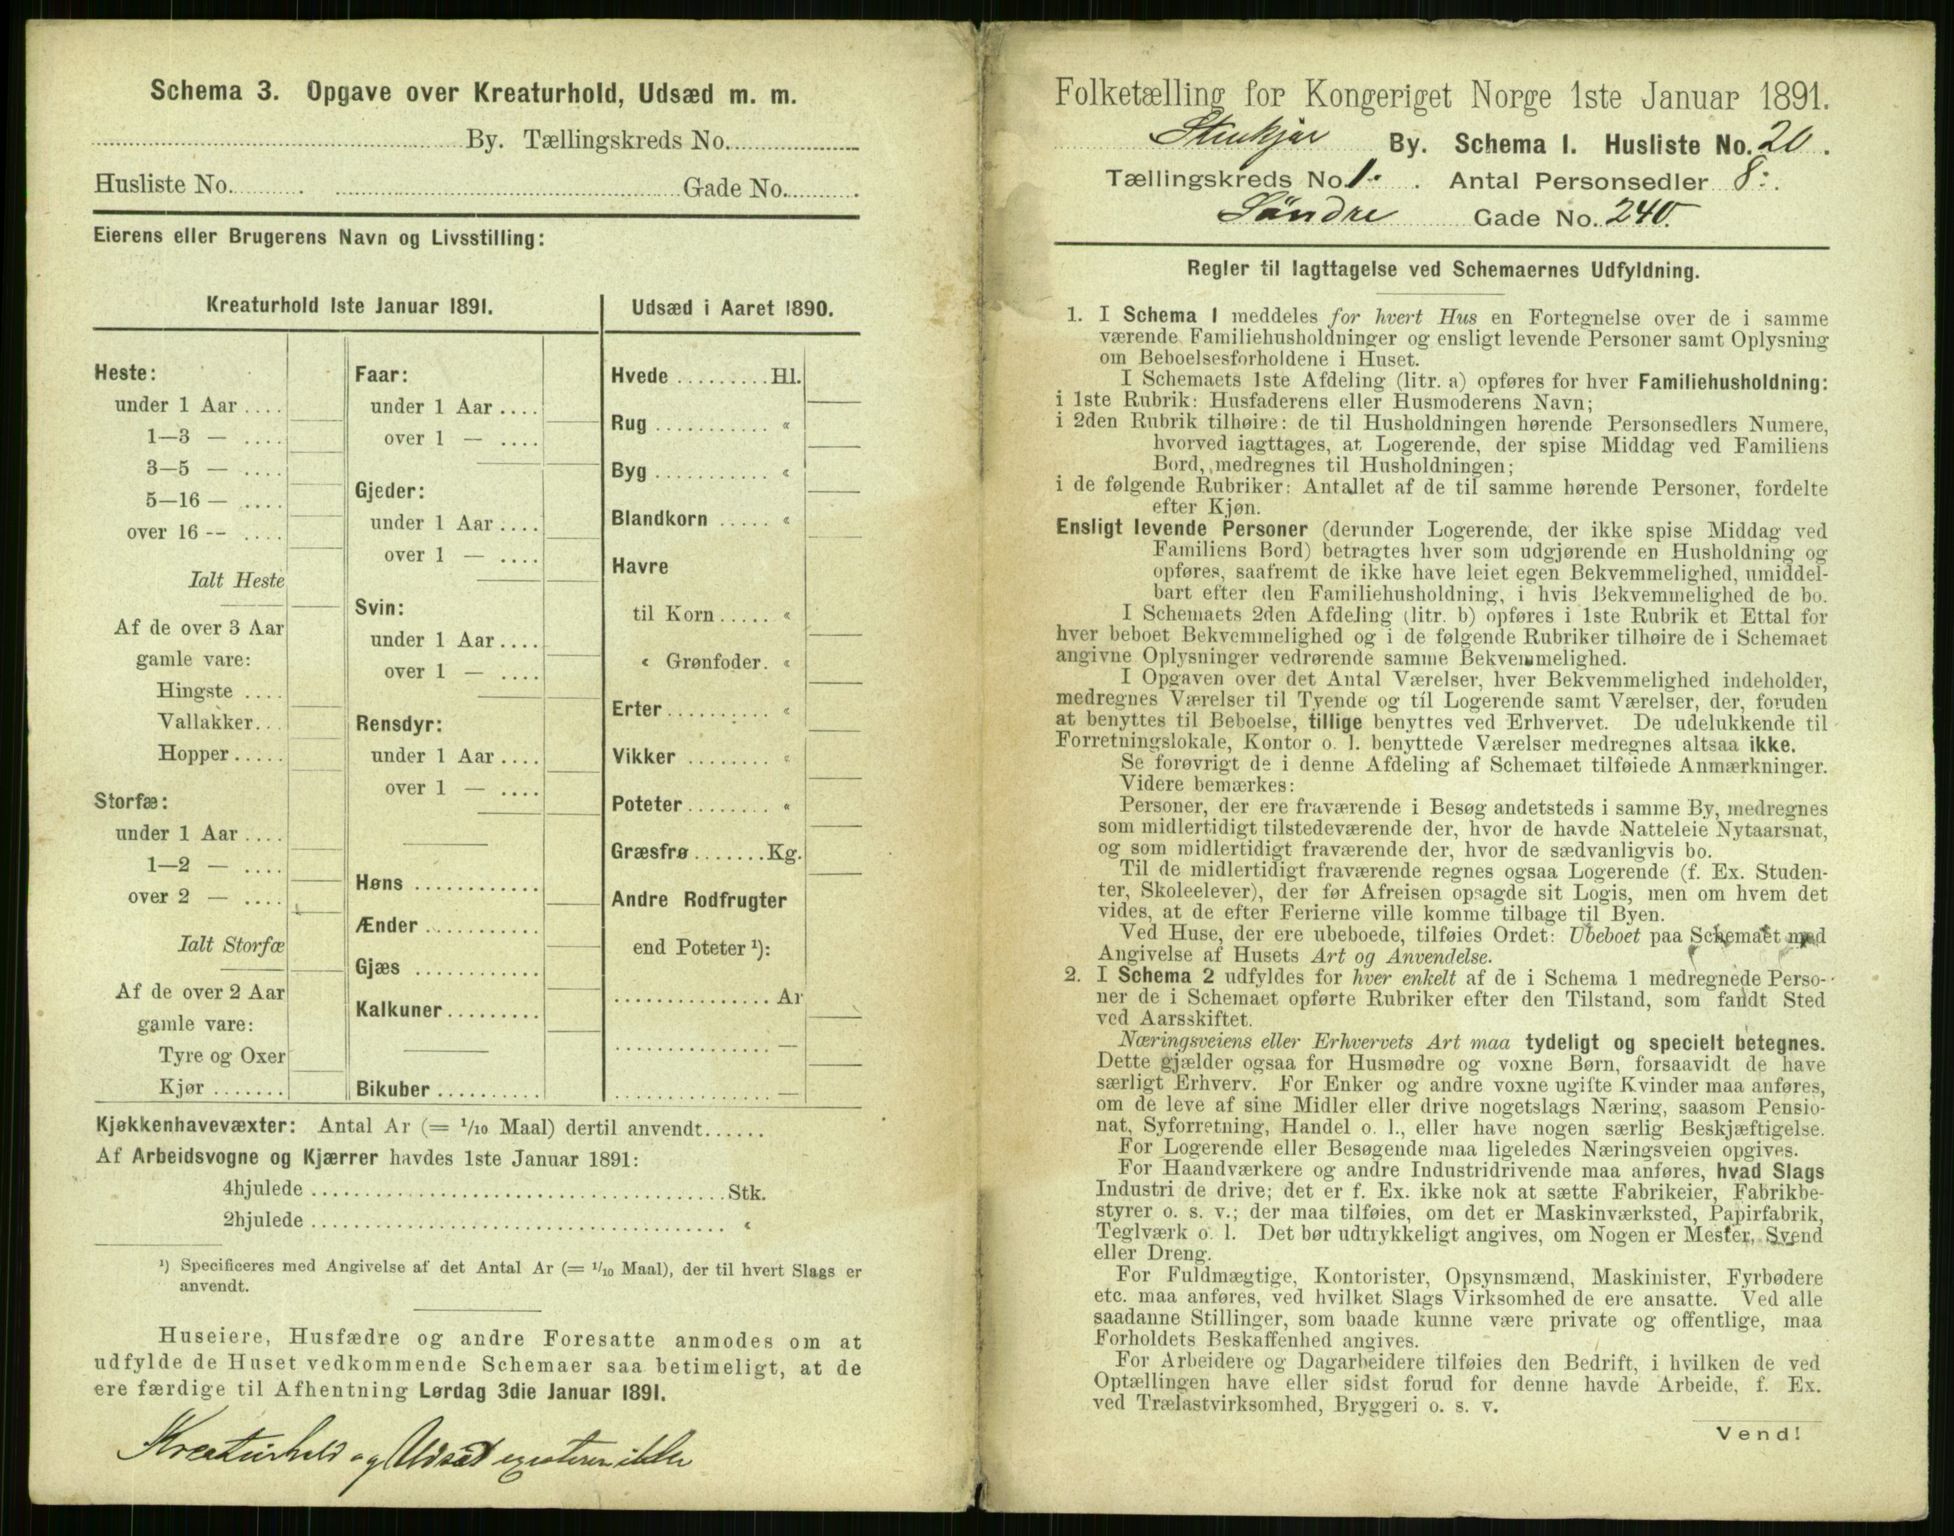 Schema 3. Opgave over Kreaturhold, Udsæd m. m.
By. Tællingskreds No.
Husliste No. Gade No.
Eierens eller Brugerens Navn og Livsstilling:
Kreaturhold 1ste Januar 1891.
Heste:
under 1 Aar
1—3 —
3—5 —
5—16 —
over 16 --
Ialt Heste
Af de over 3 Aar
gamle vare:
Hingste
Vallakker
Hopper
Storfæ:
under 1 Aar
1—2 —
over 2 —
Ialt Storfæ
Af de over 2 Aar
gamle vare:
Tyre og Oxer
Kjør
Faar:
under 1 Aar
over 1 —
Gjeder:
under 1 Aar
over 1 —
Svin:
under 1 Aar
over 1 —
Rensdyr:
under 1 Aar
over 1 —
Høns
Ænder
Gjæs
Kalkuner
Bikuber
Udsæd i Aaret 1890.
Hvede Hl.
Rug «
Byg «
Blandkorn «
Havre
til Korn «
« Grønfoder. «
Erter «
Vikker «
Poteter «
Græsfrø Kg.
Andre Rodfrugter
end Poteter ¹):
Ar
—
—
Kjøkkenhavevæxter: Antal Ar (= 1/10 Maal) dertil anvendt
Af Arbeidsvogne og Kjærrer havdes 1ste Januar 1891:
4hjulede Stk.
2hjulede «
¹) Specificeres med Angivelse af det Antal Ar (= 1/10 Maal), der til hvert Slags er
anvendt.
Huseiere, Husfædre og andre Foresatte anmodes om at
udfylde de Huset vedkommende Schemaer saa betimeligt, at de
ere færdige til Afhentning Lørdag 3die Januar 1891.
Kreaturhold og Udsæd existerer ikke
Folketælling for Kongeriget Norge 1ste Januar 1891.
Stenkjær By. Schema 1. Husliste No. 20.
Tællingskreds No. 1. Antal Personsedler 8.
Søndre Gade No. 240.
Regler til Iagttagelse ved Schemaernes Udfyldning.
1. I Schema 1 meddeles for hvert Hus en Fortegnelse over de i samme
værende Familiehusholdninger og ensligt levende Personer samt Oplysning
om Beboelsesforholdene i Huset.
I Schemaets 1ste Afdeling (litr. a) opføres for hver Familiehusholdning:
i 1ste Rubrik: Husfaderens eller Husmoderens Navn;
i 2den Rubrik tilhøire: de til Husholdningen hørende Personsedlers Numere,
hvorved iagttages, at Logerende, der spise Middag ved Familiens
Bord, medregnes til Husholdningen;
i de følgende Rubriker: Antallet af de til samme hørende Personer, fordelte
efter Kjøn.
Ensligt levende Personer (derunder Logerende, der ikke spise Middag ved
Familiens Bord) betragtes hver som udgjørende en Husholdning og
opføres, saafremt de ikke have leiet egen Bekvemmelighed, umiddel-
bart efter den Familiehusholdning, i hvis Bekvemmelighed de bo.
I Schemaets 2den Afdeling (litr. b) opføres i 1ste Rubrik et Ettal for
hver beboet Bekvemmelighed og i de følgende Rubriker tilhøire de i Schemaet
angivne Oplysninger vedrørende samme Bekvemmelighed.
I Opgaven over det Antal Værelser, hver Bekvemmelighed indeholder,
medregnes Værelser til Tyende og til Logerende samt Værelser, der, foruden
at benyttes til Beboelse, tillige benyttes ved Erhvervet. De udelukkende til
Forretningslokale, Kontor o. l. benyttede Værelser medregnes altsaa ikke.
Se forøvrigt de i denne Afdeling af Schemaet tilføiede Anmærkninger.
Videre bemærkes:
Personer, der ere fraværende i Besøg andetsteds i samme By, medregnes
som midlertidigt tilstedeværende der, hvor de havde Natteleie Nytaarsnat,
og som midlertidigt fraværende der, hvor de sædvanligvis bo.
Til de midlertidigt fraværende regnes ogsaa Logerende (f. Ex. Studen-
ter, Skoleelever), der før Afreisen opsagde sit Logis, men om hvem det
vides, at de efter Ferierne ville komme tilbage til Byen.
Ved Huse, der ere ubeboede, tilføies Ordet: Ubeboet paa Schemaet med
Angivelse af Husets Art og Anvendelse.
2. I Schema 2 udfyldes for hver enkelt af de i Schema 1 medregnede Perso-
ner de i Schemaet opførte Rubriker efter den Tilstand, som fandt Sted
ved Aarsskiftet.
Næringsveiens eller Erhvervets Art maa tydeligt og specielt betegnes.
Dette gjælder ogsaa for Husmødre og voxne Børn, forsaavidt de have
særligt Erhverv. For Enker og andre voxne ugifte Kvinder maa anføres,
om de leve af sine Midler eller drive nogetslags Næring, saasom Pensio-
nat, Syforretning, Handel o. l., eller have nogen særlig Beskjæftigelse.
For Logerende eller Besøgende maa ligeledes Næringsveien opgives.
For Haandværkere og andre Industridrivende maa anføres, hvad Slags
Industri de drive; det er f. Ex. ikke nok at sætte Fabrikeier, Fabrikbe-
styrer o. s. v.; der maa tilføies, om det er Maskinværksted, Papirfabrik,
Teglværk o. l. Det bør udtrykkeligt angives, om Nogen er Mester, Svend
eller Dreng.
For Fuldmægtige, Kontorister, Opsynsmænd, Maskinister, Fyrbødere
etc. maa anføres, ved hvilket Slags Virksomhed de ere ansatte. Ved alle
saadanne Stillinger, som baade kunne være private og offentlige, maa
Forholdets Beskaffenhed angives.
For Arbeidere og Dagarbeidere tilføies den Bedrift, i hvilken de ved
Optællingen have eller sidst forud for denne havde Arbeide, f. Ex.
ved Trælastvirksomhed, Bryggeri o. s. v.
Vend!